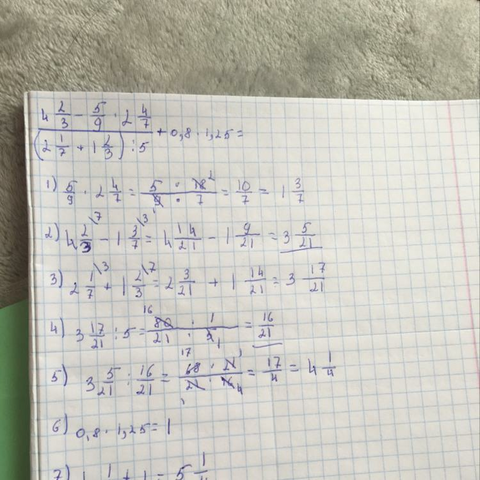 (4 2/3 - 5/9 · 2 4/7) / ((2 1/7 + 1 2/3) : 5) + 0,8 · 1,25 =
1) 5/9 · 2 4/7 = (5 · 18 2)/(9 · 7) = 10/7 = 1 3/7
2) 4 2/3 \7 - 1 3/7 \3 = 4 14/21 - 1 9/21 = 3 5/21
3) 2 1/7 \3 + 1 2/3 \7 = 2 3/21 + 1 14/21 = 3 17/21
4) 3 17/21 : 5 = (80 16 · 1)/(21 · 5 1) = 16/21
5) 3 5/21 : 16/21 = (68 17 · 21 1)/(21 1 · 16 4) = 17/4 = 4 1/4
6) 0,8 · 1,25 = 1
7) 4 1/ + 1 = 5 1/